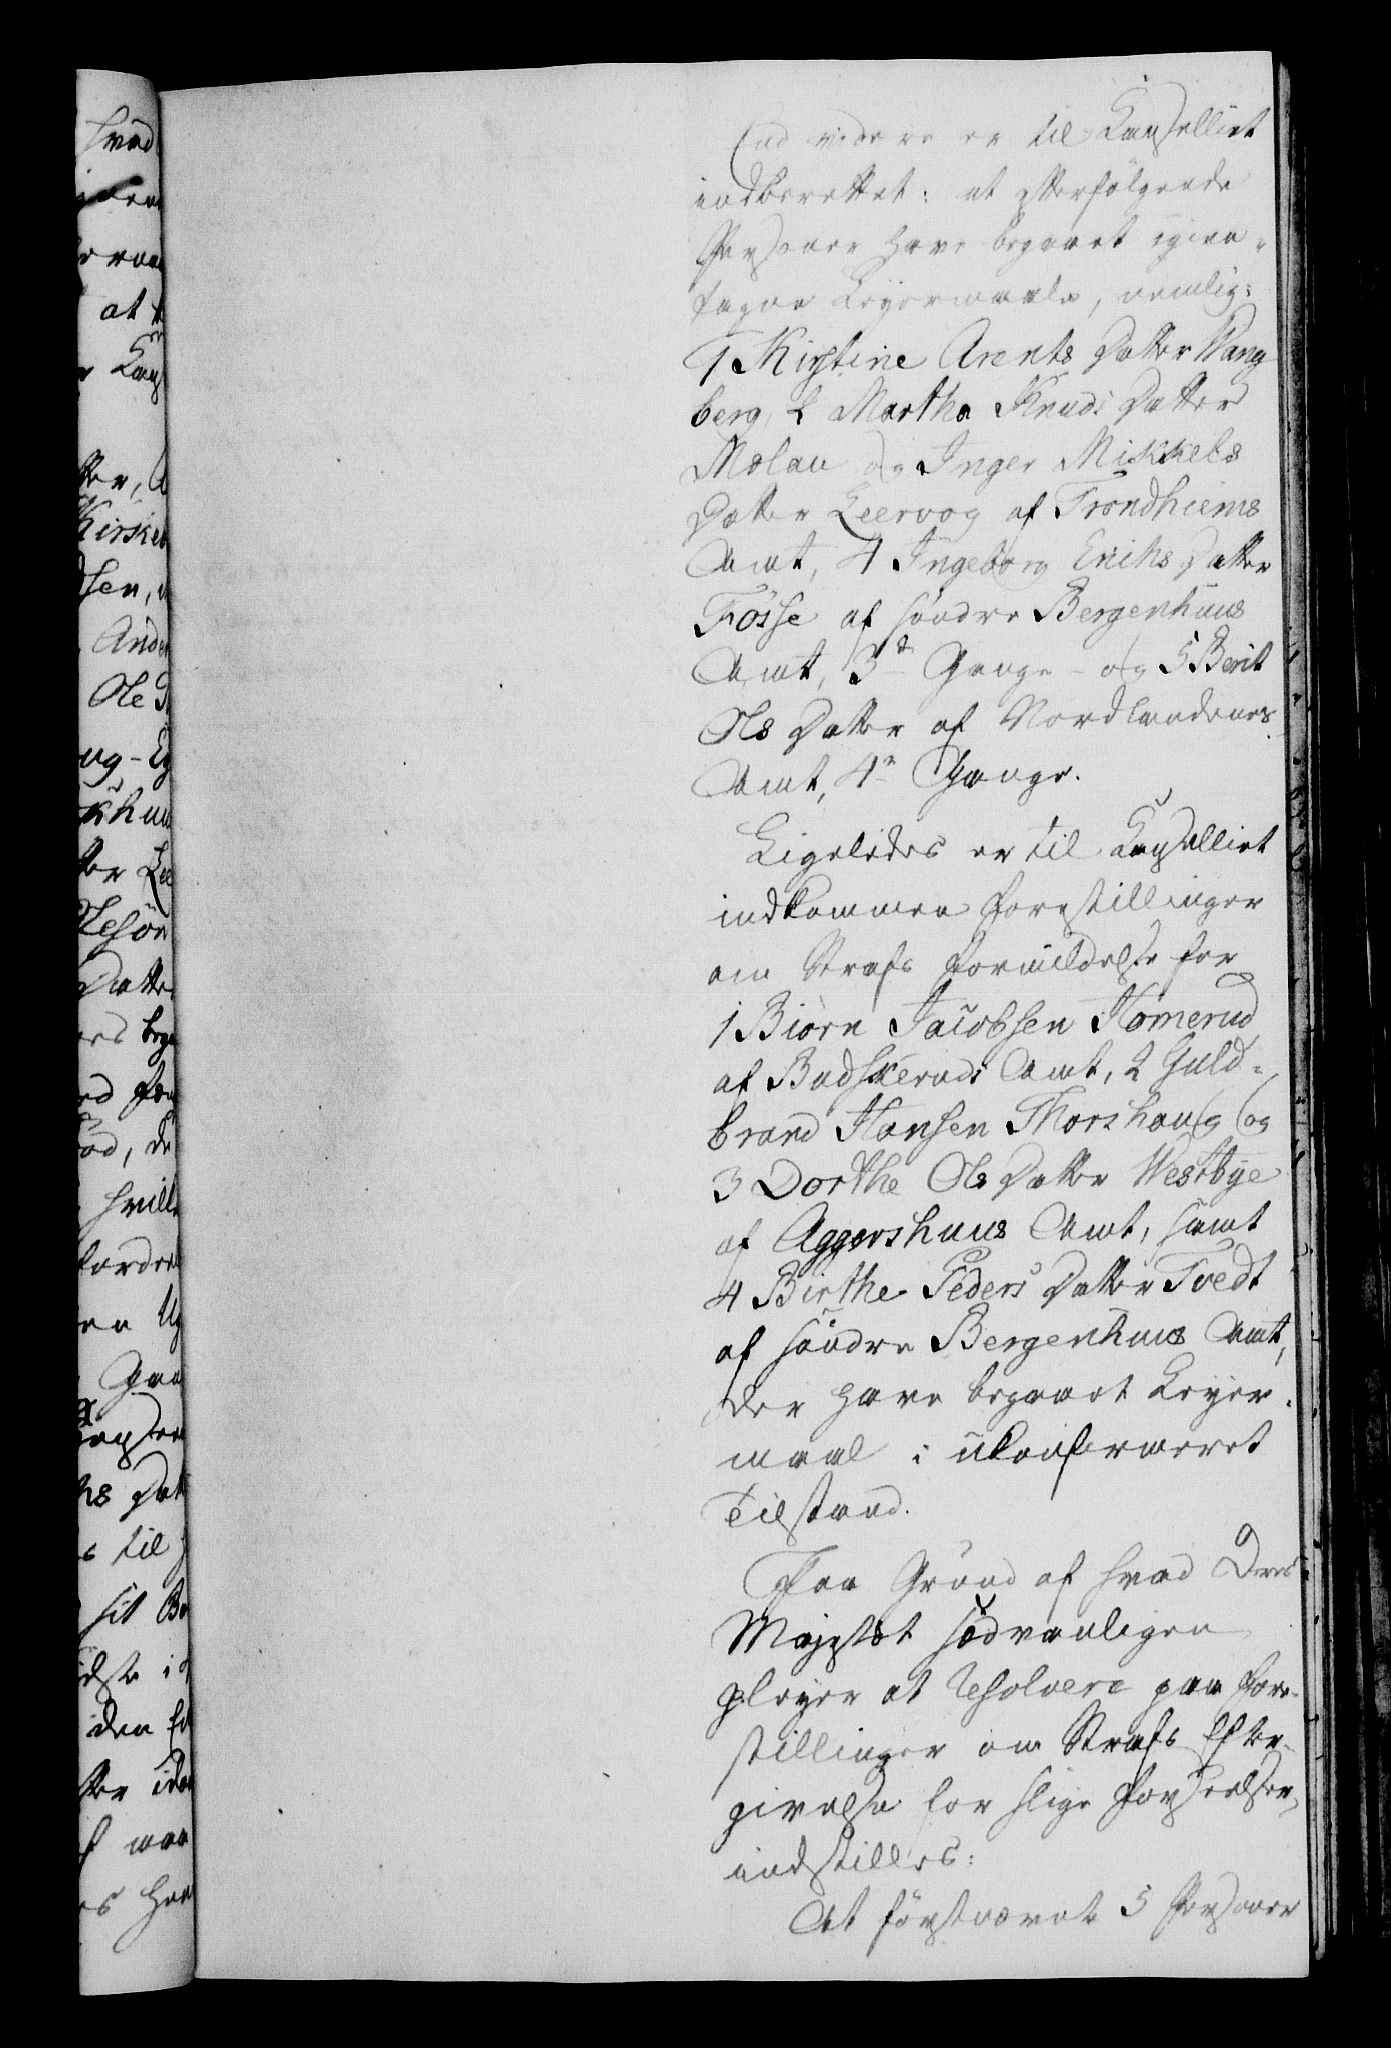 End videre er til Kanselliet
indberettet: at efterfølgende
Personer have begaaet igien-
tagne Leyermaale, nemlig:
1 Kirstine Arents Datter Wang
berg, 2 Martha Knuds Datter
Molau og Inger Mikkels
Datter Leervog af Trondhiems
Amt, 4 Ingeborg Erichs Datter
Fosse af søndre Bergenhuus
Amt, 3de Gange - og 5 Berit
Ols Datter af Nordlandenes
Amt, 4de Gange.
Ligeledes er til Kanselliet
indkommen Forestillinger
om Strafs Formildelse for
1 Biørn Jacobsen Homerud
af Budskeruds Amt, 2 Guld-
brand Hansen Thorshaug og
3 Dorthe Ols Datter Westbye
af Aggershuus Amt, samt
4 Birthe Peders Datter Tvedt
af søndre Bergenhuus Amt,
der have begaaet Leyer-
maal i ukonfirmeret
Tilstand.
Paa Grund af hvad Deres
Majestæt sædvanligen
pleyer at resolvere paa Fore-
stillinger om Strafs Efter-
givelse for slige Forseelser,
indstilles:
At førstnævnte 5 Personer
hvad
at
Kirskeb
Ole
til
sit
den